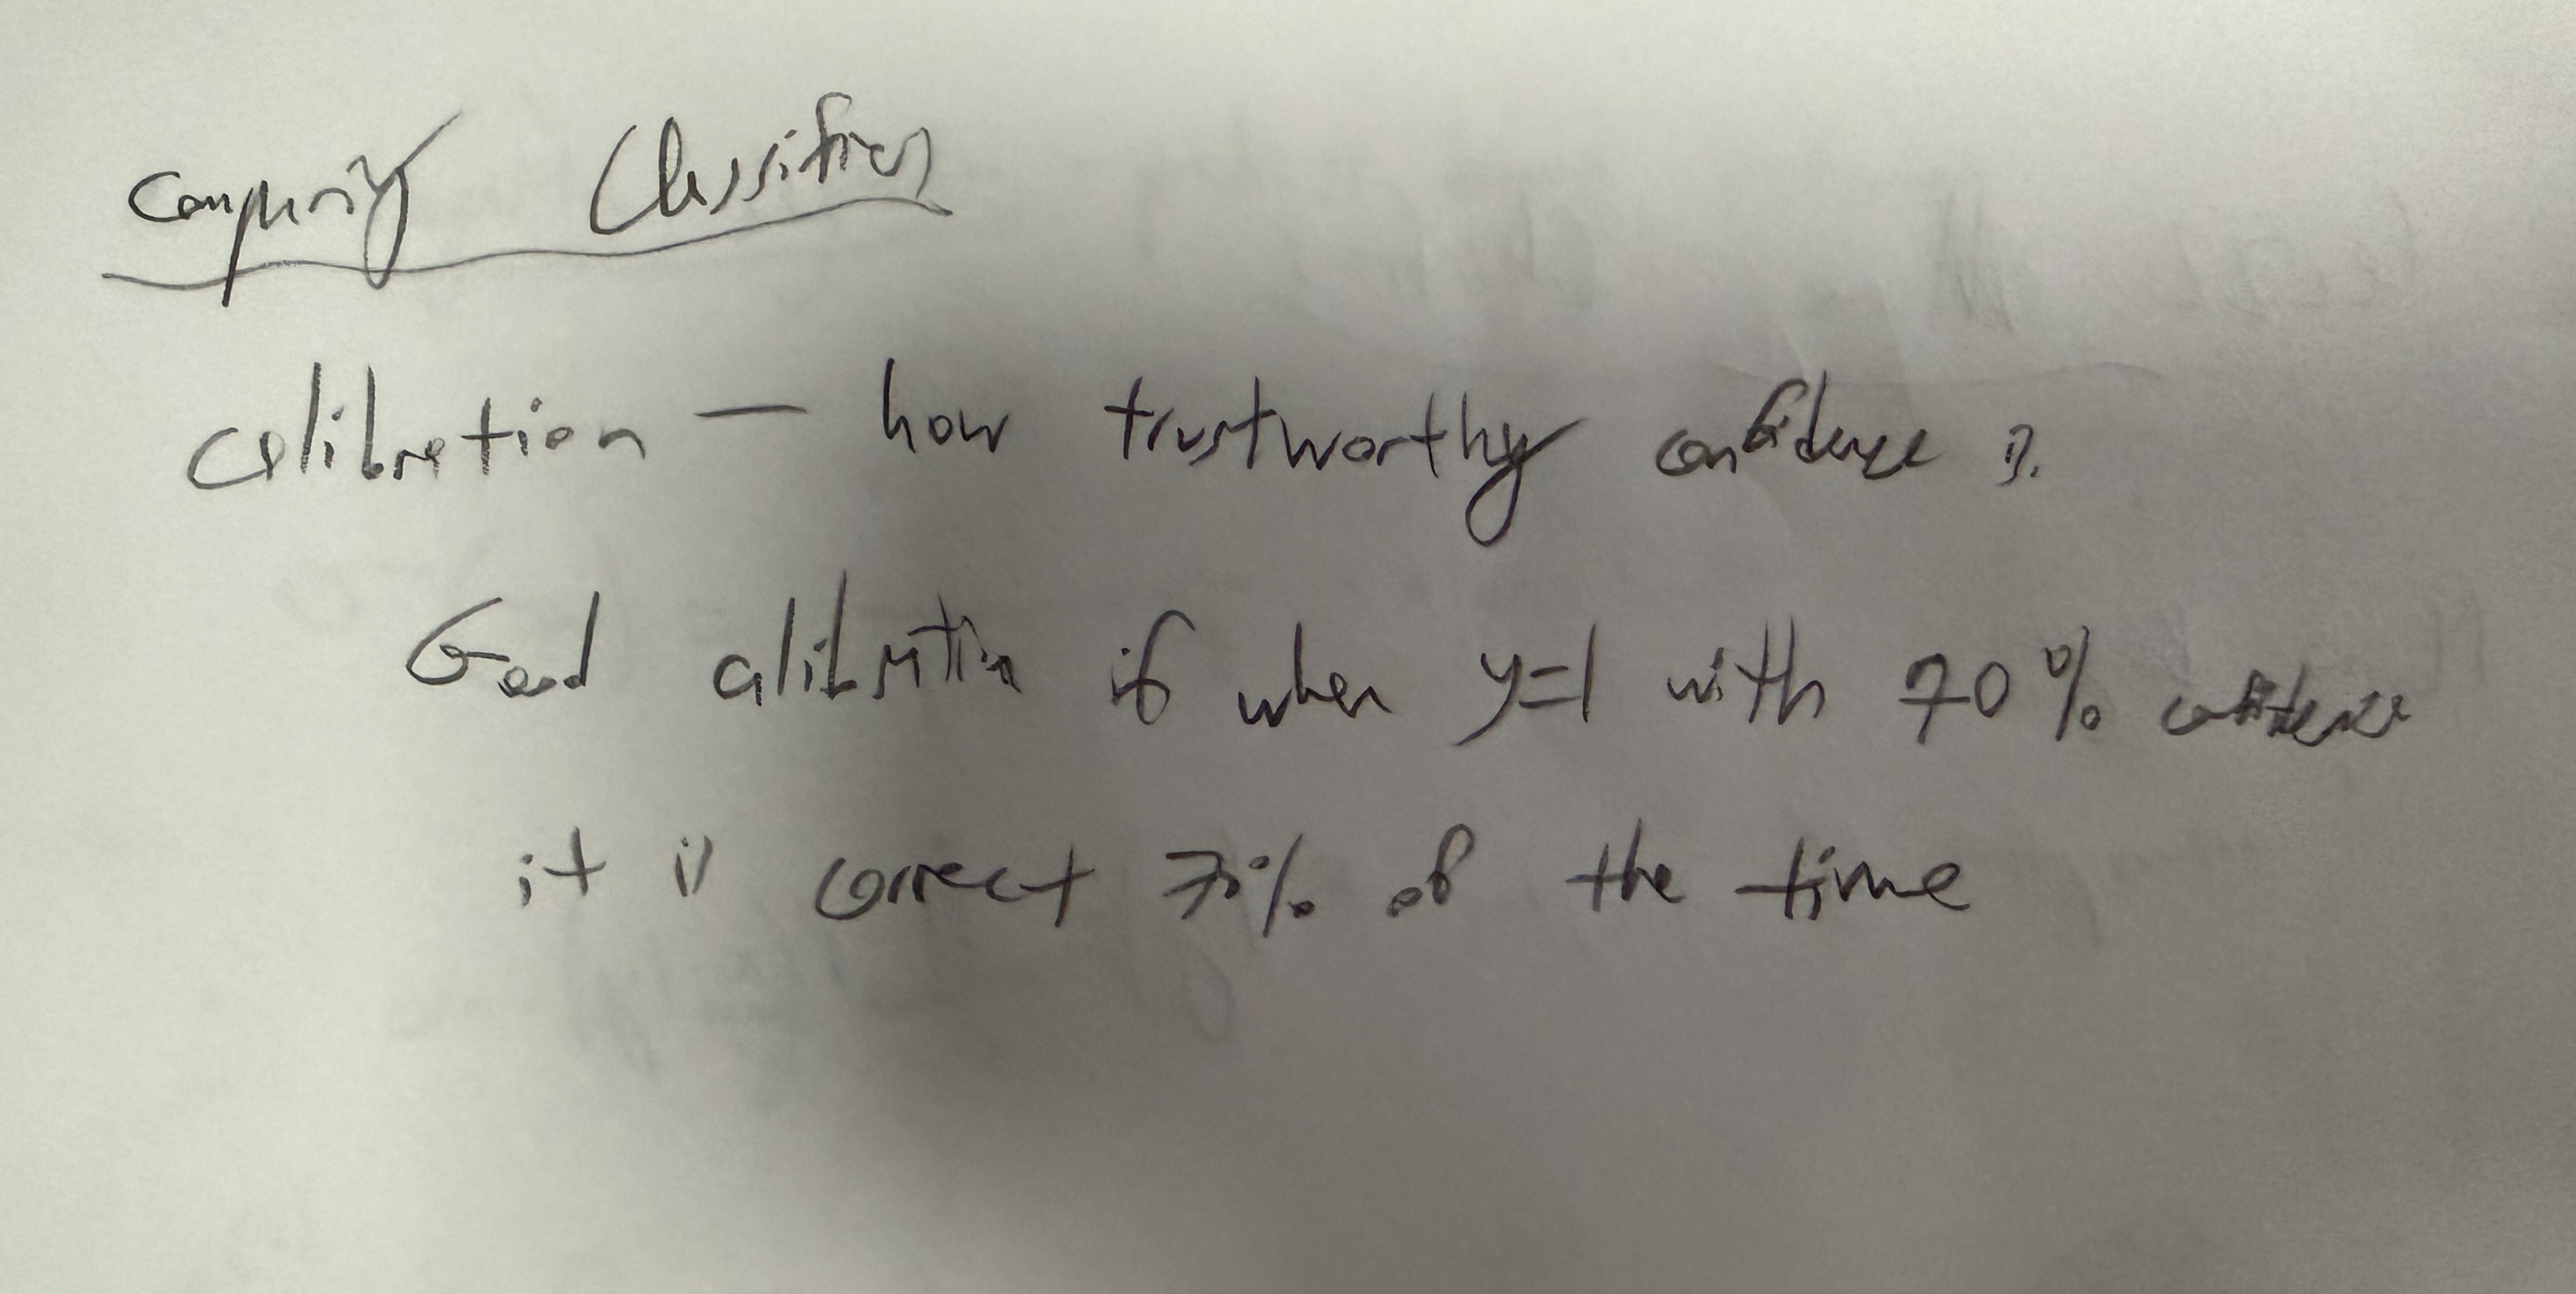 Comparing Classifiers
Calibration — how trustworthy confidence is.
Good calibration if when y=1 with 70% confidence
it is correct 70% of the time